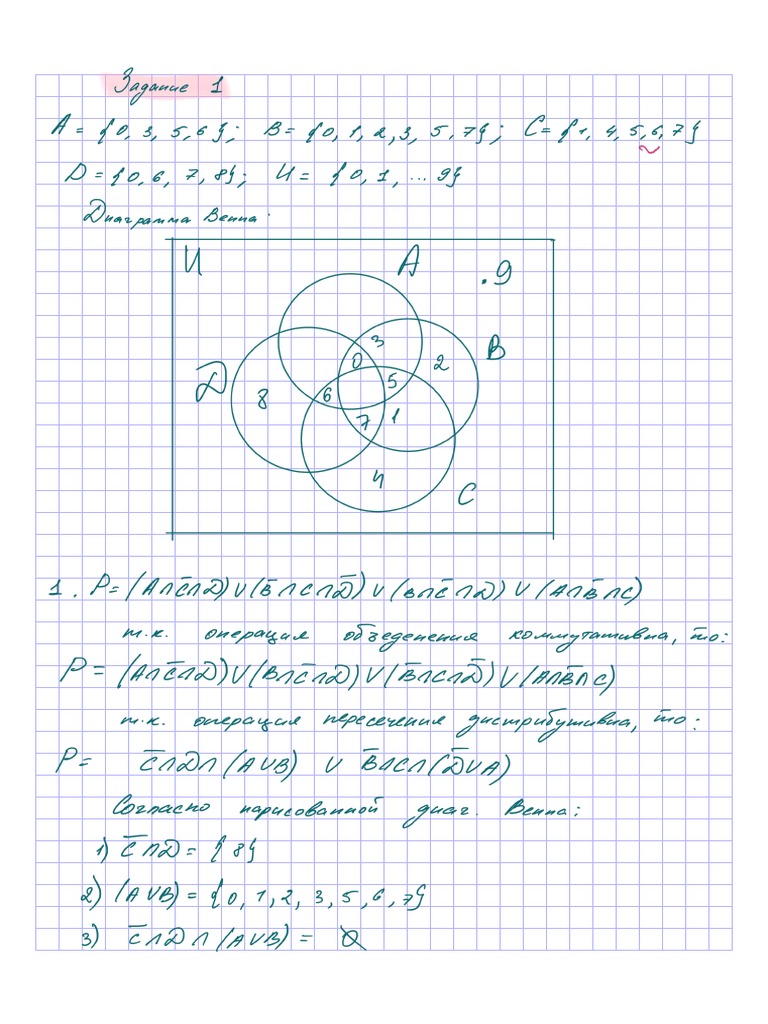 Задание 1
A = {0, 3, 5, 6}; B = {0, 1, 2, 3, 5, 7}; C = {1, 4, 5, 6, 7}
D = {0, 6, 7, 8}; U = {0, 1, ... 9}
Диаграмма Венна:
U A .9
3 B
0 2
D 5
8 6
7 1
4 C
1. P = (A∩C̅∩D) ∪ (B̅∩C∩D̅) ∪ (B∩C̅∩D) ∪ (A∩B̅∩C)
т.к. операция объеденения коммутативна, то:
P = (A∩C̅∩D) ∪ (B∩C̅∩D) ∪ (B̅∩C∩D̅) ∪ (A∩B̅∩C)
т.к. операция пересечения дистрибутивна, то:
P = C̅∩D∩(A∪B) ∪ B̅∩C∩(D̅∪A)
Согласно нарисованной диаг. Венна:
1) C̅∩D = {8}
2) (A∪B) = {0, 1, 2, 3, 5, 6, 7}
3) C̅∩D∩(A∪B) = ∅